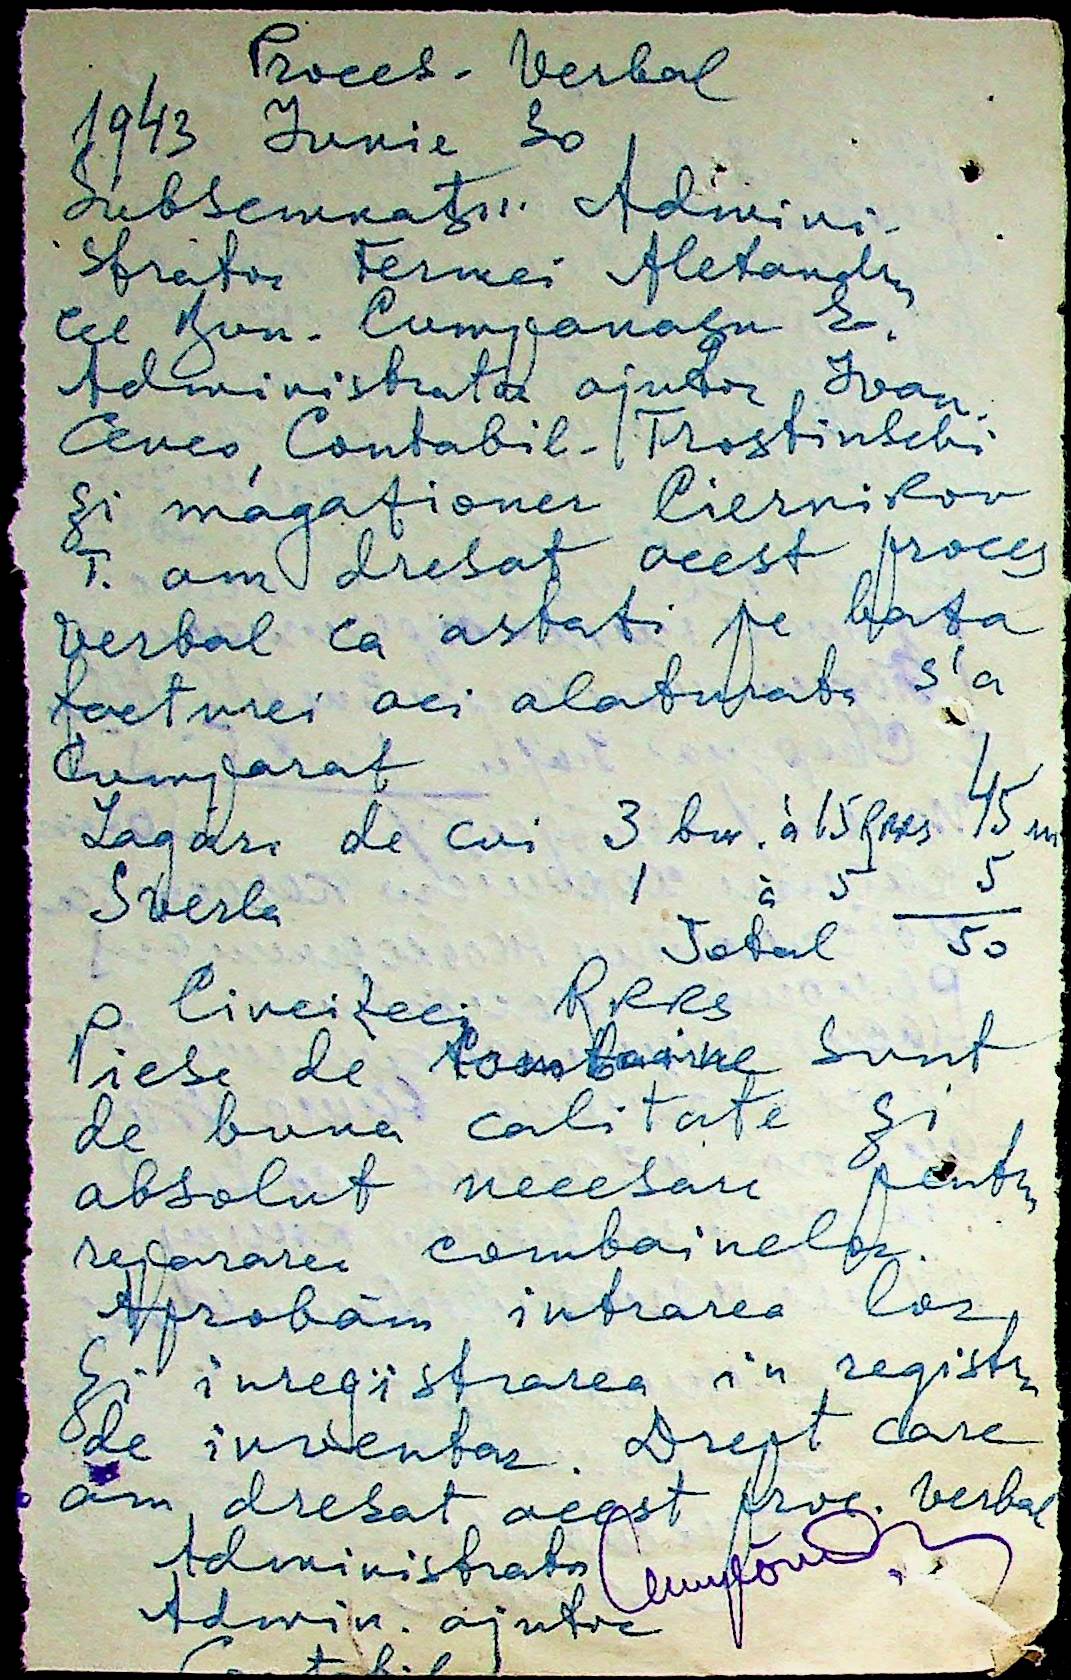 Proces-Verbal
1943 Iunie 30
Subsemnații Admini-
strator Fermei Alexandru
cel Bun. Cumpanașu E.
Administrator ajutor, Ivan.
Cenco, Contabil-Trostinschi
și magaționer Ciernikov
T. am dresat acest proces
verbal ca astați pe bata
facturei aci alaturata s'a
Cumparat
Lagări de cui 3 bu. à 15 RKKS 45 m
Sverla 1 à 5 5
Total 50
Cincizeci RKKS
Piese de Combaine sunt
de buna calitate și
absolut necesare pentru
repararea combainelor.
Aprobăm intrarea lor
și inregistrarea in registru
de inventar. Drept care
am dresat acest proc. verbal
Administrator
Admin. ajutor
Contabil